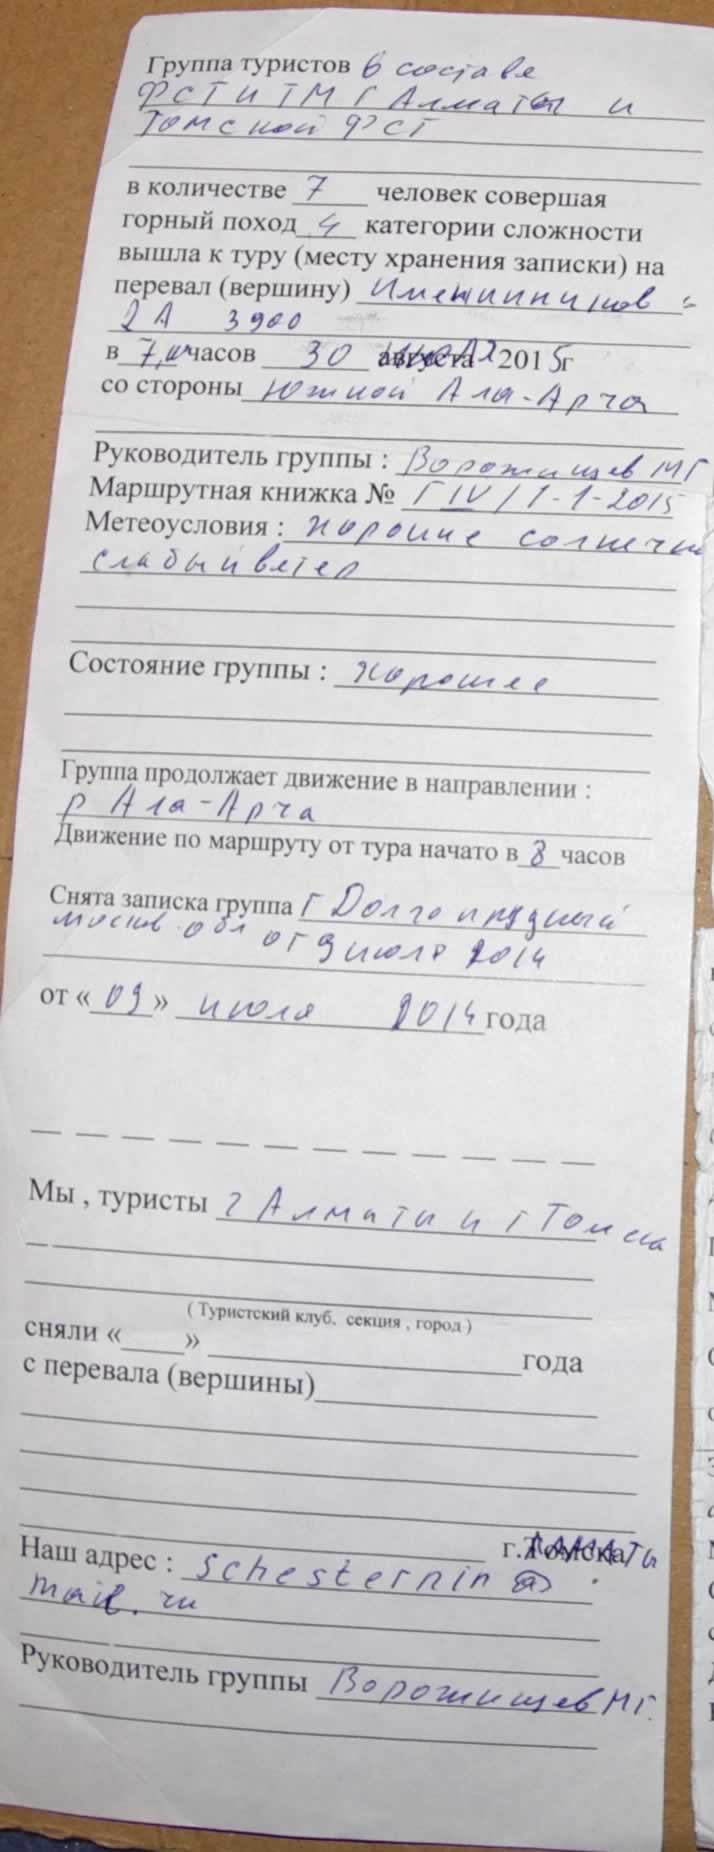 Группа туристов в составе
ФСТ и ТМ г Алматы и
Томской ФСТ
в количестве 7 человек совершая
горный поход 4 категории сложности
вышла к туру (месту хранения записки) на
перевал (вершину) Именинников
2А 3900
в 7 часов 30 2015г
со стороны Южной Ала-Арча
Руководитель группы : Ворожищев МГ
Маршрутная книжка № Г IV / 1-1-2015
Метеоусловия : хорошие солнечно
слабый ветер
Состояние группы : хорошее
Группа продолжает движение в направлении :
р Ала-Арча
Движение по маршруту от тура начато в 8 часов
Снята записка группа г Долгопрудный
москов. обл от 9 июля 2014
от «09» июля 2014 года
Мы , туристы г Алматы и г Томска
( Туристский клуб, секция , город )
сняли «____» года
с перевала (вершины)
г. Алматы
Наш адрес : schesternin@
mail.ru
Руководитель группы Ворожищев МГ.